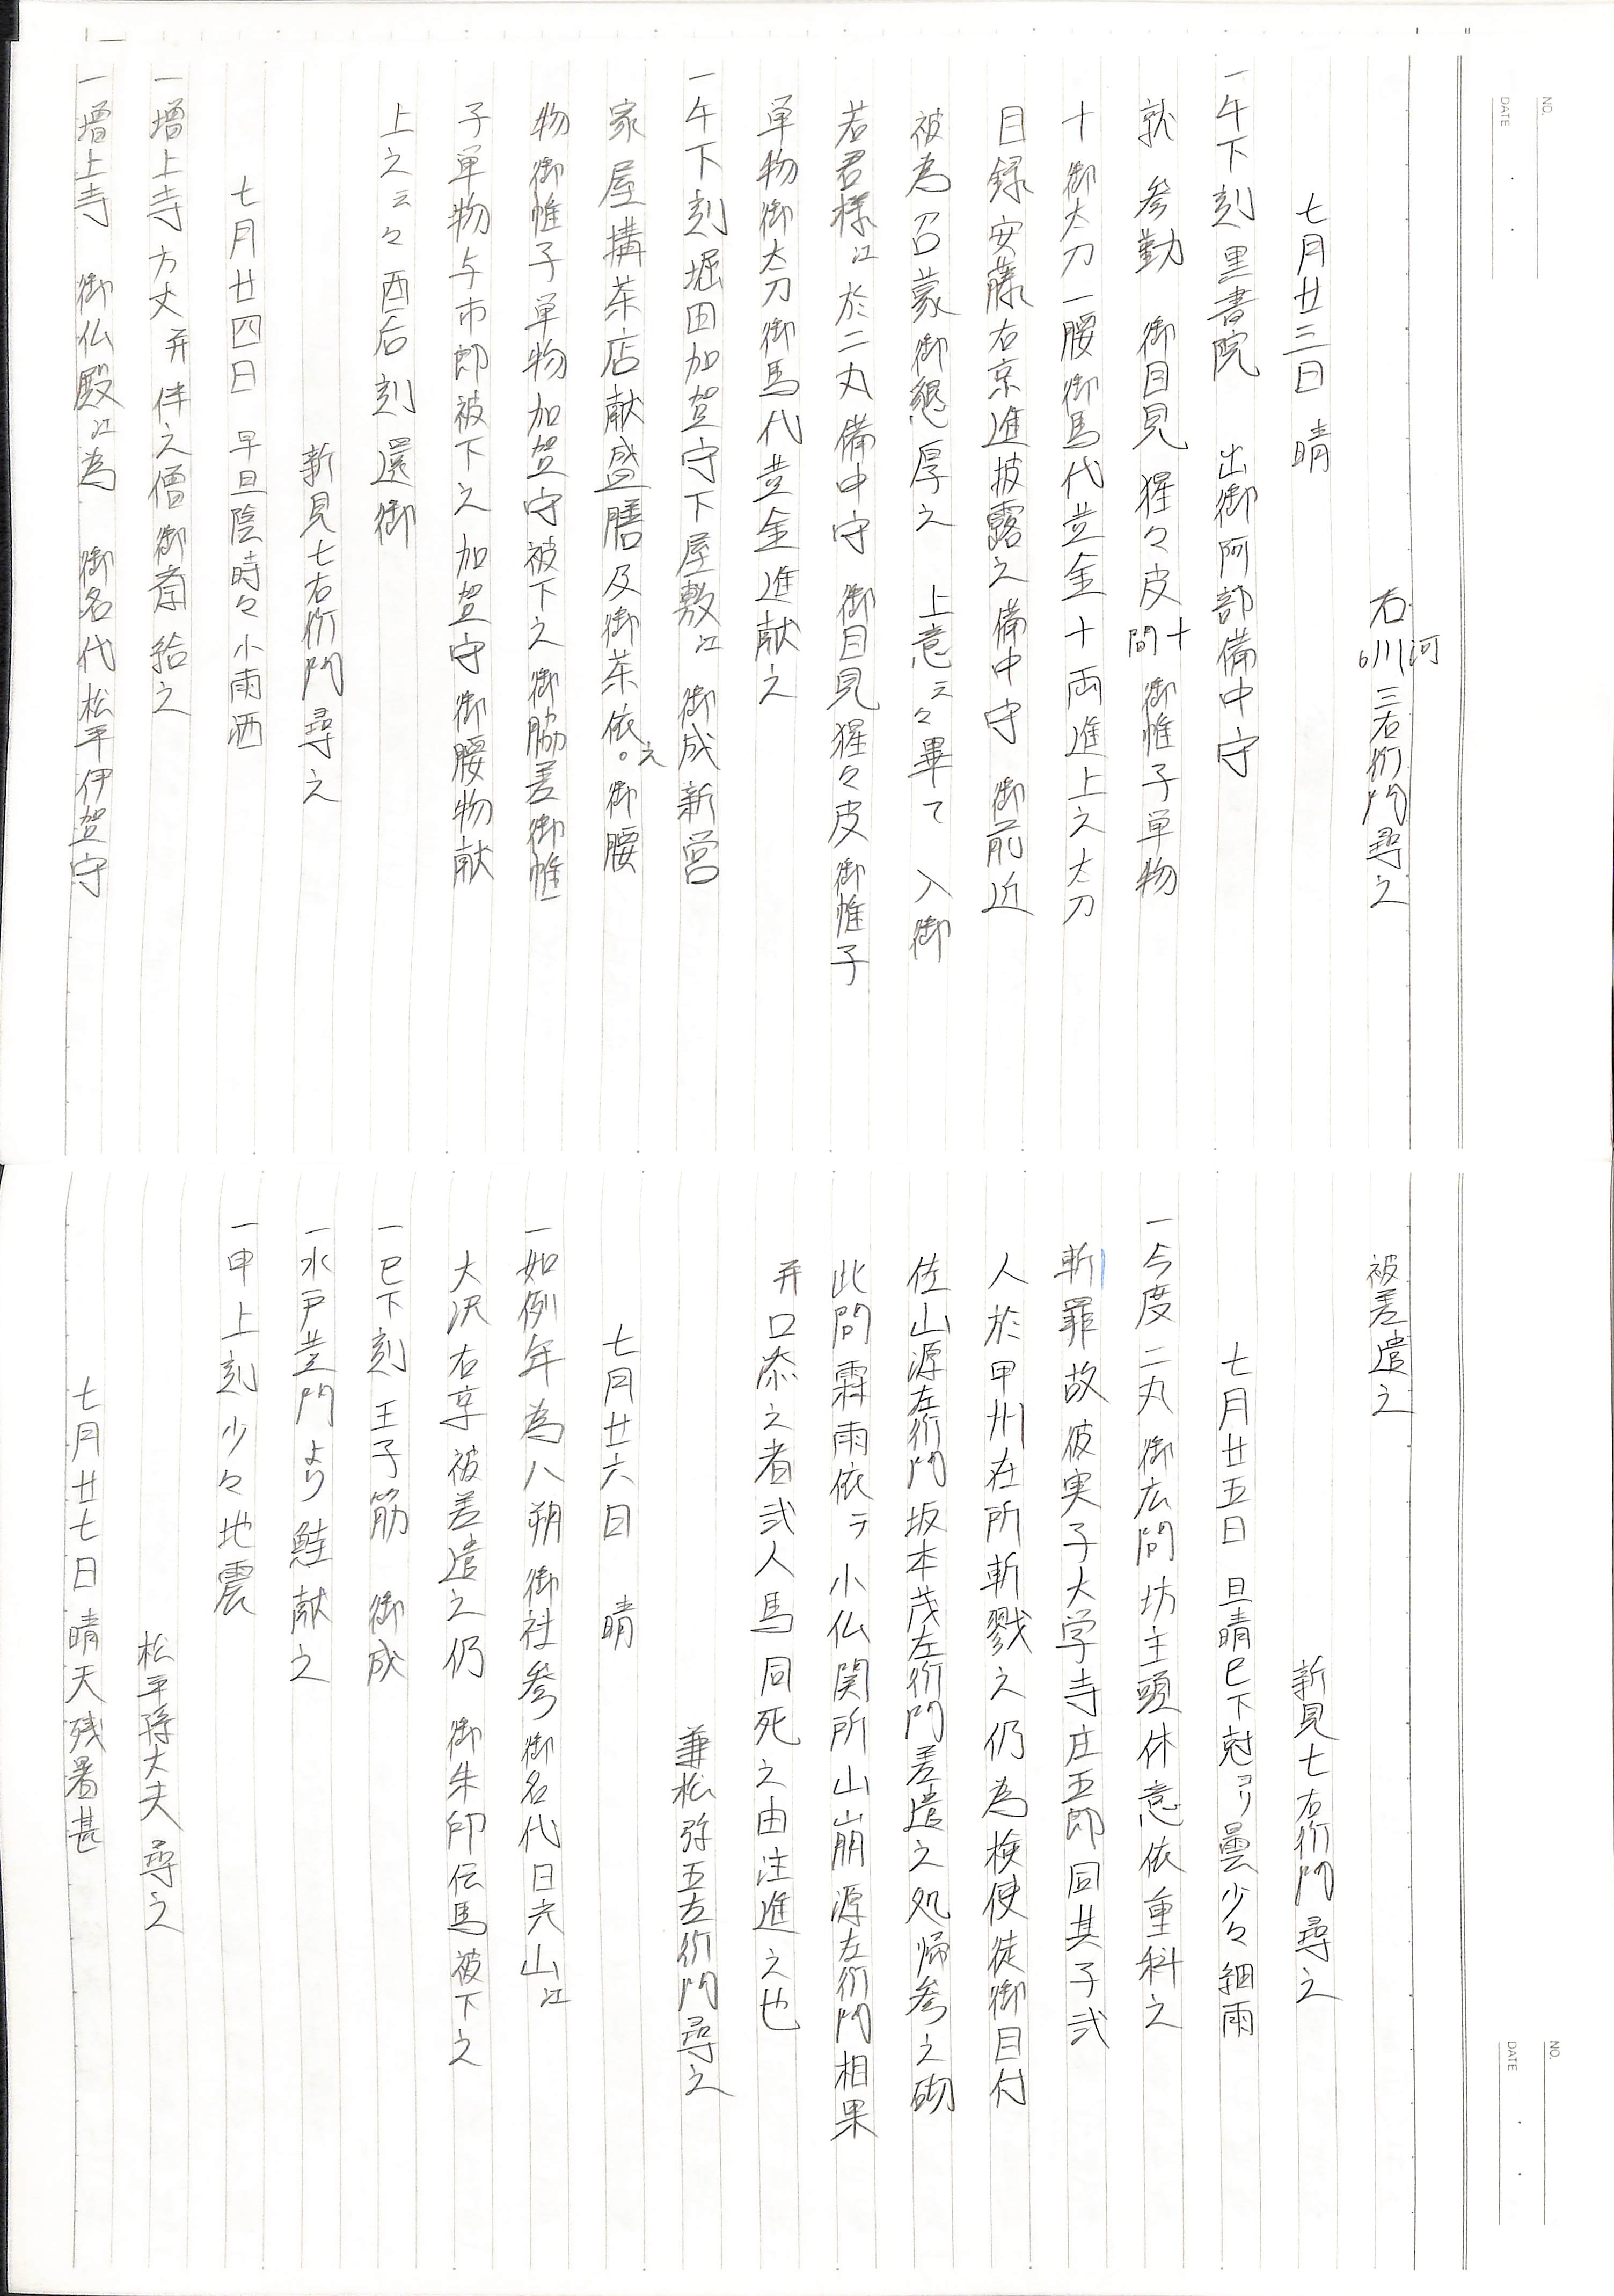 NO.
DATE
石川三右衛門尋之
河
七月廿三日 晴
一午下刻黒書院 出御阿部備中守
就 参勤 御目見猩々皮十間 御惟子単物
十御太刀一腰御馬代黄金十両進上之太刀
目録安藤右京進披露之備中守 御前近
被為召蒙御懇厚之 上意云々畢て 入御
若君様江於二丸備中守 御目見猩々皮御惟子
単物御太刀御馬代黄金進献之
一午下刻堀田加賀守下屋敷江 御成新営
家屋搆茶店献盛膳及御茶依之御腰
物御帷子単物加賀守被下之御脇差御帷
子単物与市郎被下之加賀守御腰物献
上之云々酉后刻還御
新見七右衛門尋之
七月廿四日 早旦陰時々小雨洒
一増上寺方丈并伴之僧御斎給之
一増上寺 御仏殿江為 御名代松平伊賀守
NO.
DATE
被差遣之
新見七右衛門尋之
七月廿五日 旦晴巳下尅ヨリ曇少々細雨
一今度二丸御広間坊主頭休意依重科之
斬罪故彼実子大学寺庄五郎同其子弐
人於甲州在所斬戮之仍為検使徒御目付
佐山源左衛門坂本茂左衛門差遣之処帰参之砌
此間霖雨依テ小仏関所山崩源左衛門相果
并口添之者弐人馬同死之由注進之也
兼松弥五左衛門尋之
七月廿六日 晴
一如例年為八朔御社参御名代日光山江
大沢右京被差遣之仍 御朱印伝馬被下之
一巳下刻王子筋 御成
一水戸黄門より鮭献之
一申上刻少々地震
松平隼大夫尋之
七月廿七日晴天残暑甚